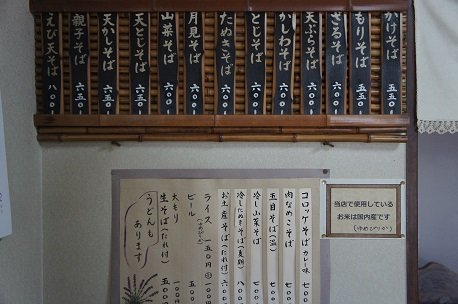 かけそば 五五〇
もりそば 五五〇
ざるそば 六〇〇
天ぷらそば
かしわそば
とじそば 六〇〇
たぬきそば 六〇〇
月見そば 六〇〇
山菜そば 六〇〇
天とじそば
天かしそば
親子そば
えび天そば 八〇〇
コロッケそば カレー味 七〇
肉なめこそば
五目そば(温)
冷し山菜そば
冷したぬきそば(夏期)
お土産そば(たれ付)
ライス
ビール
大もり
生そば(たれ付)
うどんも
あります
当店で使用している
お米は国内産です
(ゆめぴりか)